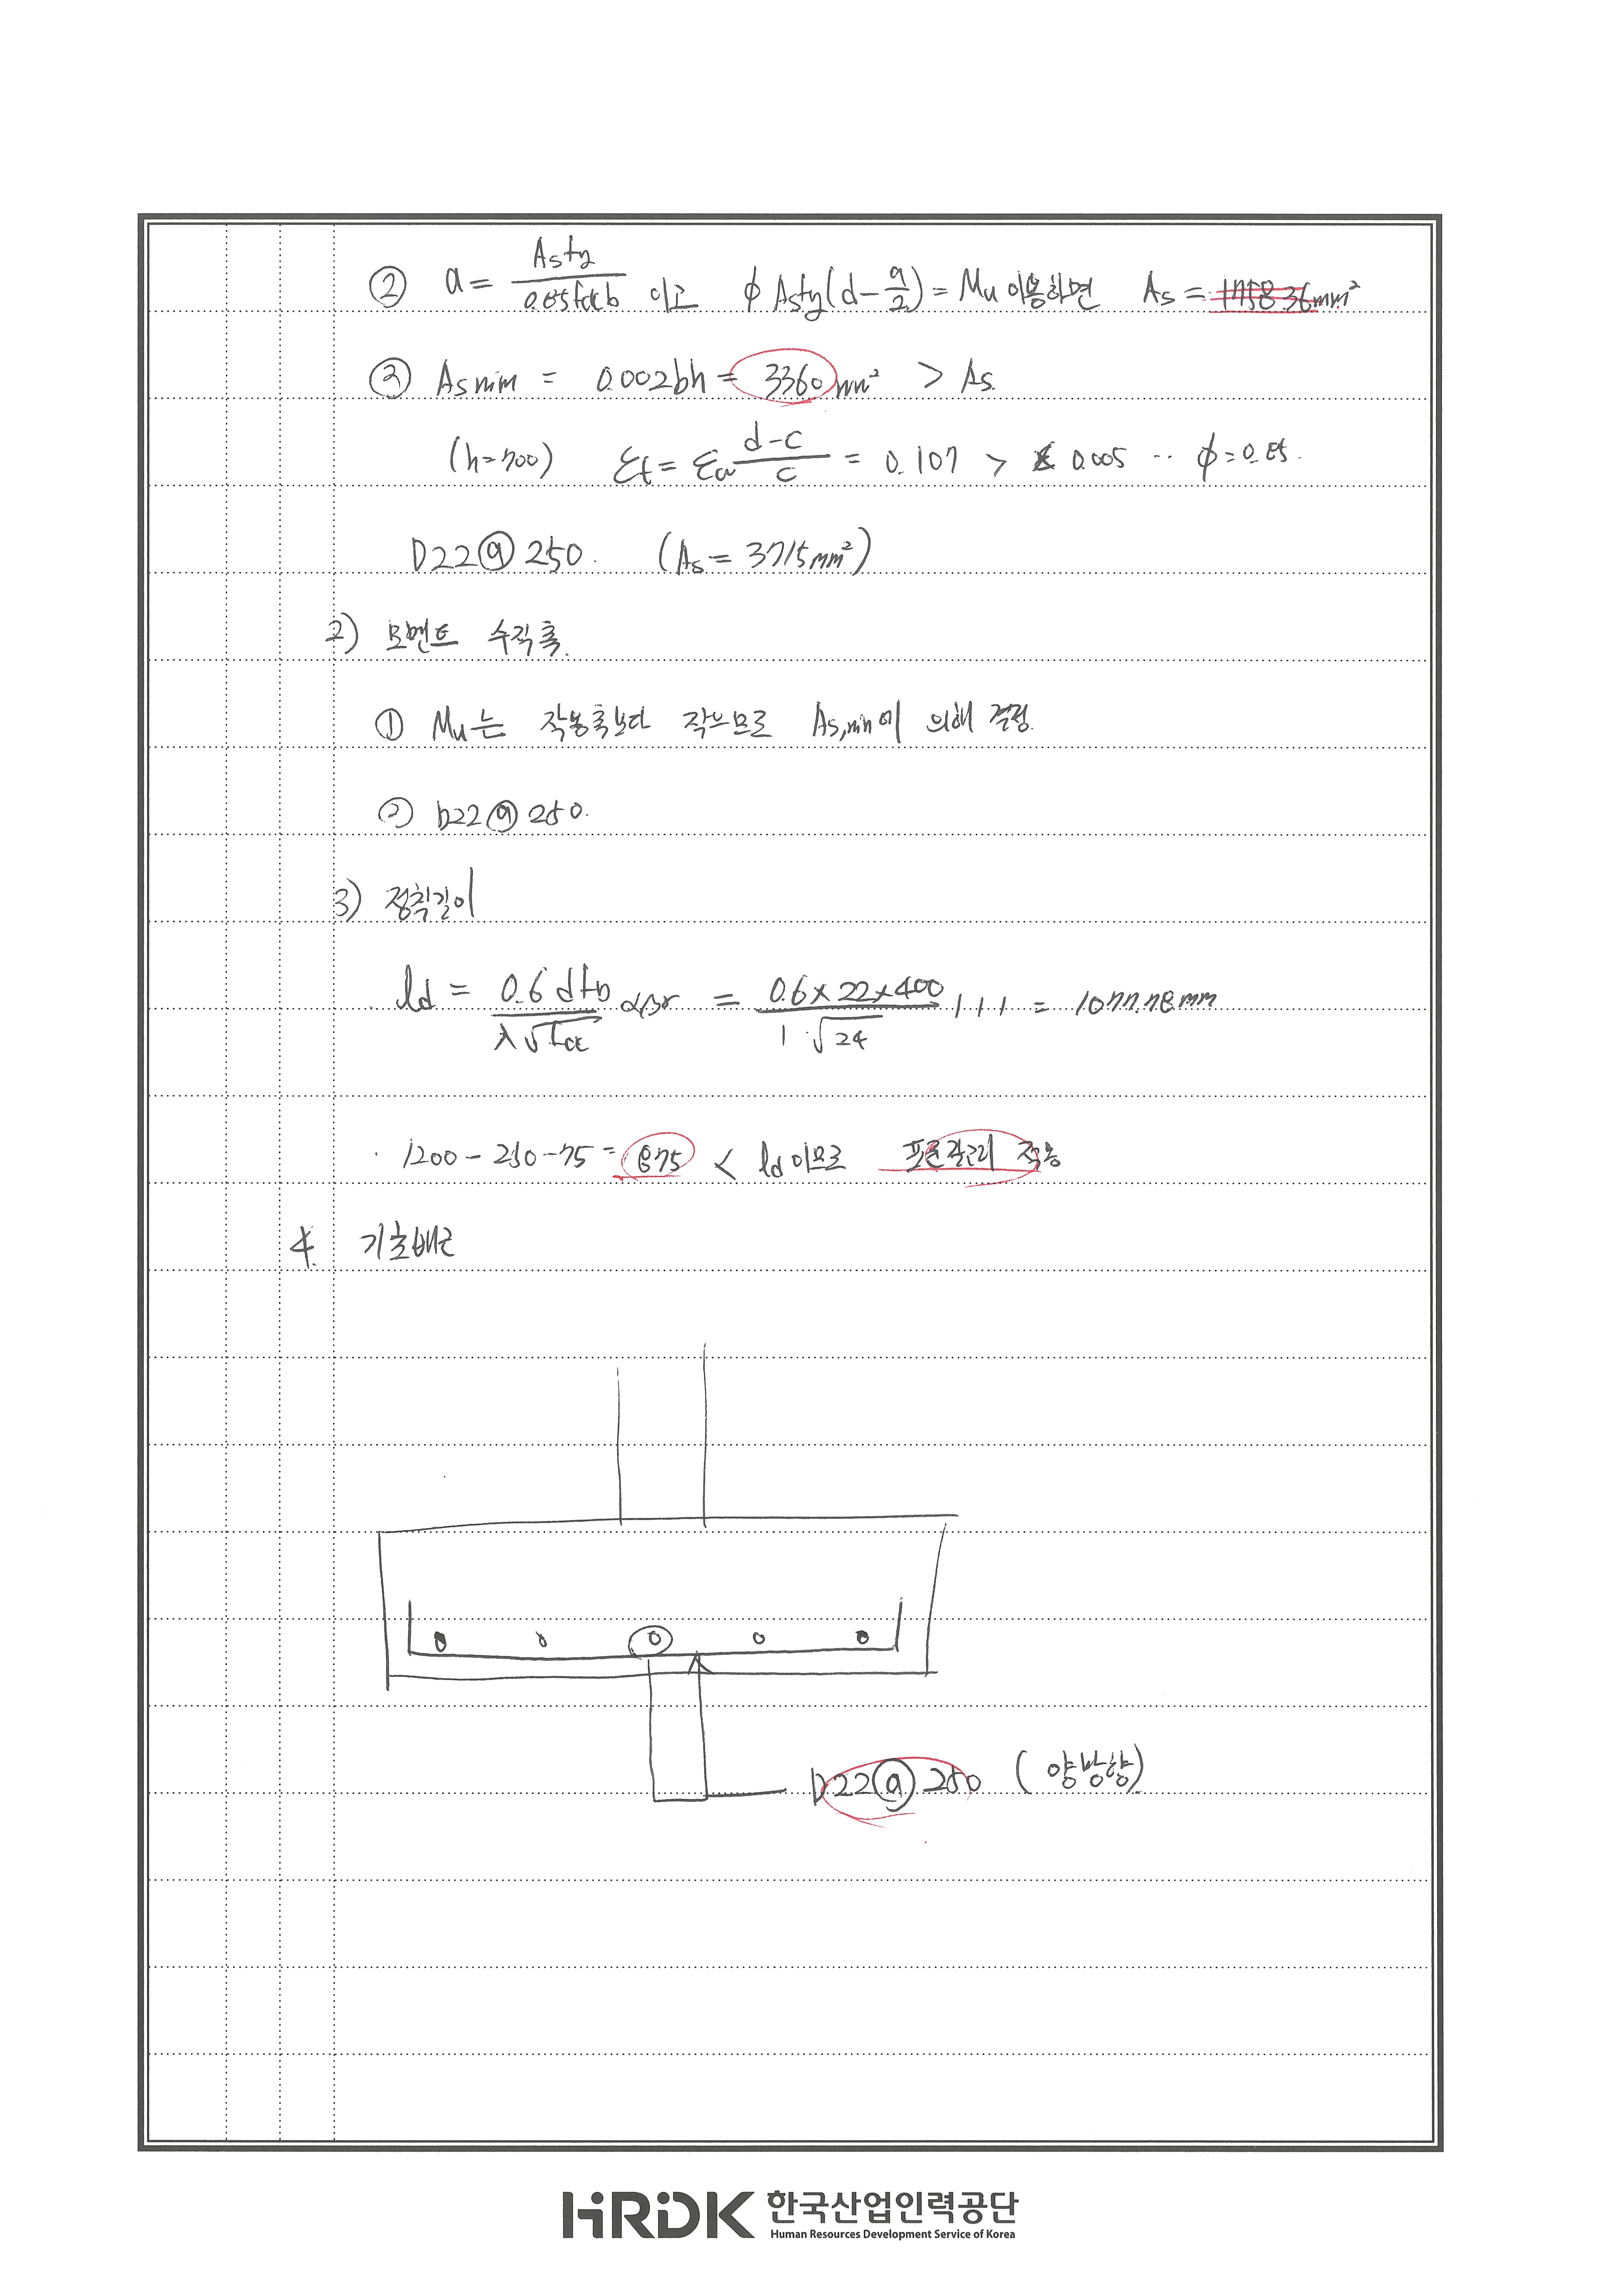 ② a = Asfy / 0.85fck b 이고 φAsfy(d-a/2) = Mu 이용하면 As = 1758.36mm²
③ Asmin = 0.002bh = 3360mm² > As.
(h=700) εt = εcu d-c / c = 0.107 > 0.005 ∴ φ=0.85.
D22@250. (As = 3715mm²)
2) 모멘트 수직축.
① Mu는 작용축보다 작으므로 As,min에 의해 결정.
② D22@250.
3) 정착길이
ld = 0.6 d fb / λ√fck αβγ = 0.6×22×400 / 1 √24 1 1 1 = 1077.78mm
· 1200 - 250 - 75 = 875 < ld 이므로 표준갈고리 적용
4. 기초배근
D22@250 (양방향)
HRDK 한국산업인력공단
Human Resources Development Service of Korea